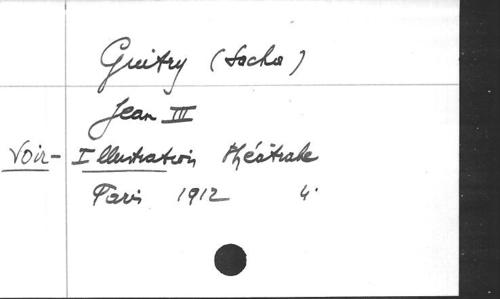 Guitry (Sacha)
Jean III
Voir - Illustration théâtrale
Paris 1912 4°